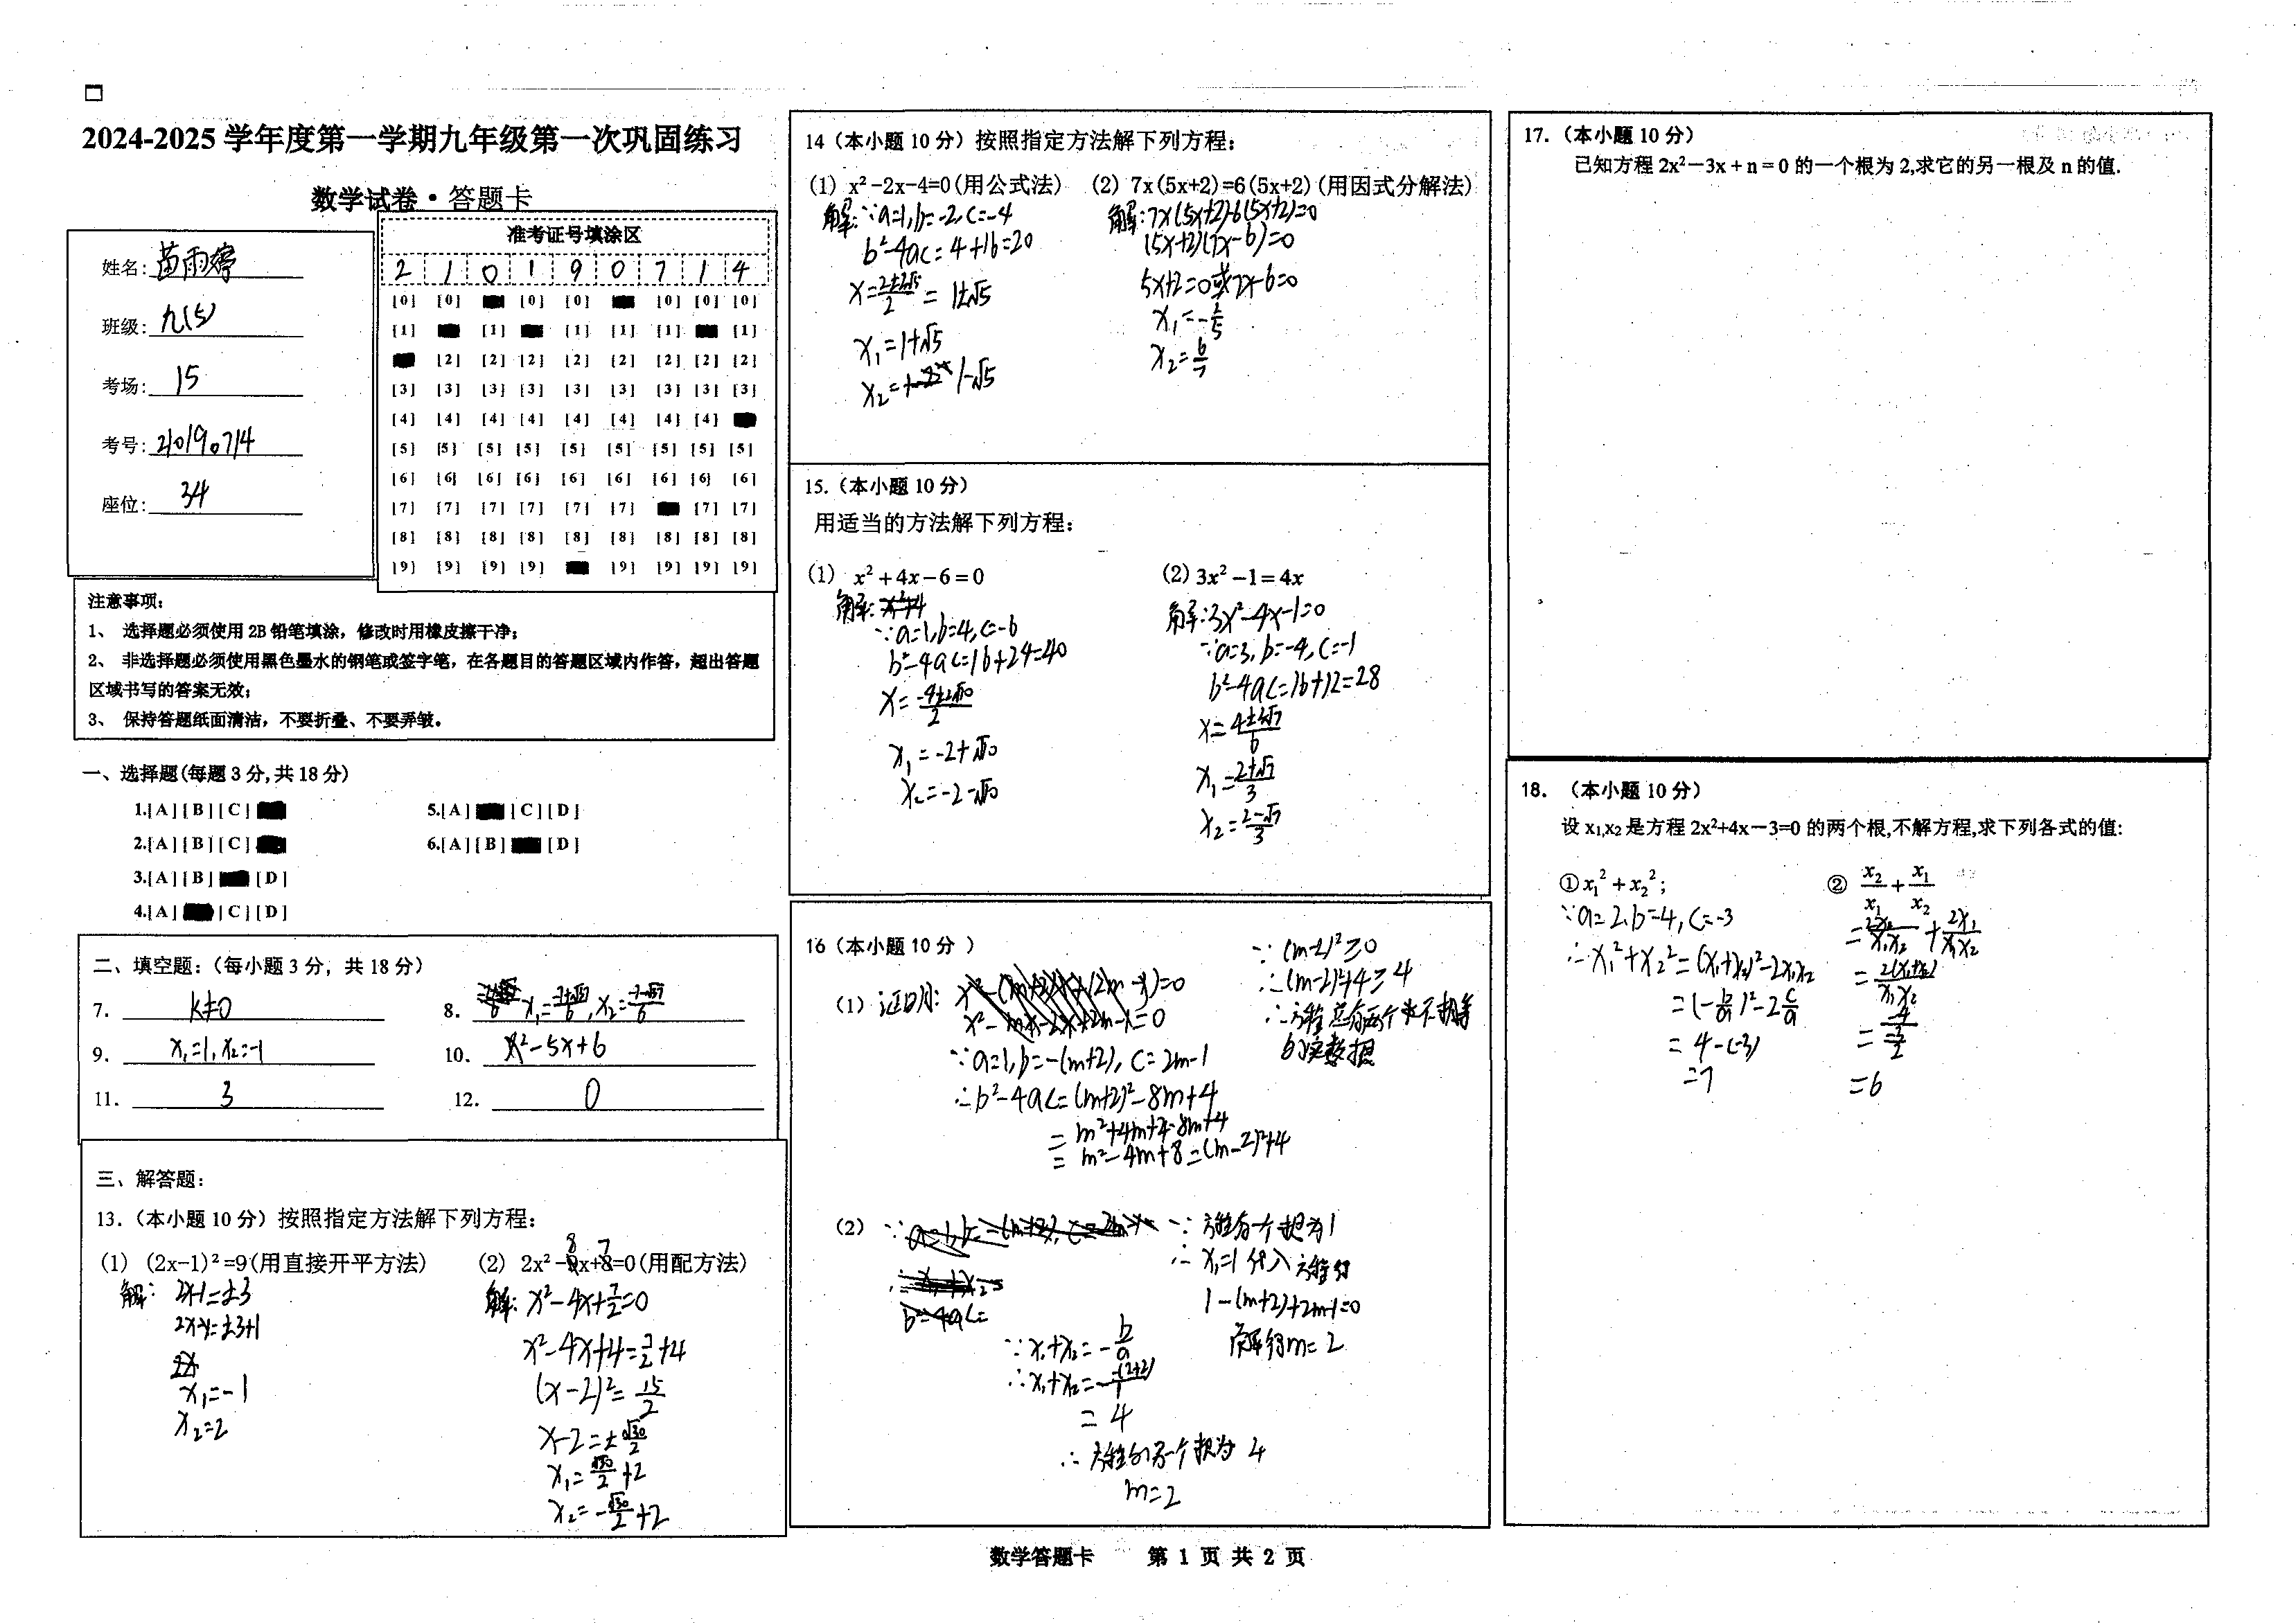 2024-2025 学年度第一学期九年级第一次巩固练习
数学试卷·答题卡
姓名：苗雨婷
班级：九(5)
考场：15
考号：210190714
座位：34
准考证号填涂区
2 1 0 1 9 0 7 1 4
[0] [0] [0] [0] [0] [0] [0]
[1] [1] [1] [1] [1] [1]
[2] [2] [2] [2] [2] [2] [2] [2]
[3] [3] [3] [3] [3] [3] [3] [3] [3]
[4] [4] [4] [4] [4] [4] [4] [4]
[5] [5] [5] [5] [5] [5] [5] [5] [5]
[6] [6] [6] [6] [6] [6] [6] [6] [6]
[7] [7] [7] [7] [7] [7] [7] [7]
[8] [8] [8] [8] [8] [8] [8] [8] [8]
[9] [9] [9] [9] [9] [9] [9] [9]
注意事项：
1、 选择题必须使用 2B 铅笔填涂，修改时用橡皮擦干净；
2、 非选择题必须使用黑色墨水的钢笔或签字笔，在各题目的答题区域内作答，超出答题
区域书写的答案无效；
3、 保持答题纸面清洁，不要折叠、不要弄皱。
一、选择题(每题 3 分,共 18 分)
1.[A][B][C]
2.[A][B][C]
3.[A][B] [D]
4.[A] [C][D]
5.[A] [C][D]
6.[A][B] [D]
二、填空题：（每小题 3 分，共 18 分）
7. k≠0
8.
9. x₁=1, x₂=-1
10. x²-5x+6
11. 3
12. 0
三、解答题：
13.（本小题 10 分）按照指定方法解下列方程：
(1) (2x-1)²=9(用直接开平方法)
解： 2x-1=±3
x₁=-1
x₂=2
(2) 2x²-8x+7=0(用配方法)
解：x²-4x+7/2=0
x²-4x+4=7/2+4
(x-2)²=15/2
x-2=±√30/2
x₁=√30/2+2
x₂=-√30/2+2
14（本小题 10 分）按照指定方法解下列方程：
(1) x²-2x-4=0(用公式法)
解：∵a=1,b=-2,c=-4
b²-4ac=4+16=20
x=(2±2√5)/2=1±√5
x₁=1+√5
x₂=1-√5
(2) 7x(5x+2)=6(5x+2)(用因式分解法)
解：7x(5x+2)-6(5x+2)=0
(5x+2)(7x-6)=0
5x+2=0或7x-6=0
x₁=-2/5
x₂=6/7
15.（本小题 10 分）
用适当的方法解下列方程：
(1) x²+4x-6=0
解：
∵a=1,b=4,c=-6
b²-4ac=16+24=40
x=(-4±2√10)/2
x₁=-2+√10
x₂=-2-√10
(2) 3x²-1=4x
解：3x²-4x-1=0
∵a=3,b=-4,c=-1
b²-4ac=16+12=28
x=(4±2√7)/6
x₁=(2+√7)/3
x₂=(2-√7)/3
16（本小题 10 分 ）
(1) 证明：
∵a=1,b=-(m+2),c=2m-1
∴b²-4ac=(m+2)²-8m+4
=m²+4m+4-8m+4
=m²-4m+8=(m-2)²+4
∵(m-2)²≥0
∴(m-2)²+4≥4
∴方程总有两个不相等
的实数根
(2) ∵方程有一个根为1
∴x₁=1代入方程得
1-(m+2)+2m-1=0
解得m=2
∵x₁+x₂=-b/a
∴x₁+x₂=-(-(2+2))/1
=4
∴方程的另一个根为 4
m=2
17.（本小题 10 分）
已知方程 2x²-3x+n=0 的一个根为 2,求它的另一根及 n 的值.
18. （本小题 10 分）
设 x₁,x₂ 是方程 2x²+4x-3=0 的两个根,不解方程,求下列各式的值:
①x₁²+x₂²;
∵a=2,b=4,c=-3
∴x₁²+x₂²=(x₁+x₂)²-2x₁x₂
=(-b/a)²-2c/a
=4-(-3)
=7
② x₂/x₁+x₁/x₂
=2x₂/x₁x₂+2x₁/x₁x₂
=2(x₁+x₂)/x₁x₂
=-4/(-3/2)
=6
数学答题卡 第 1 页 共 2 页